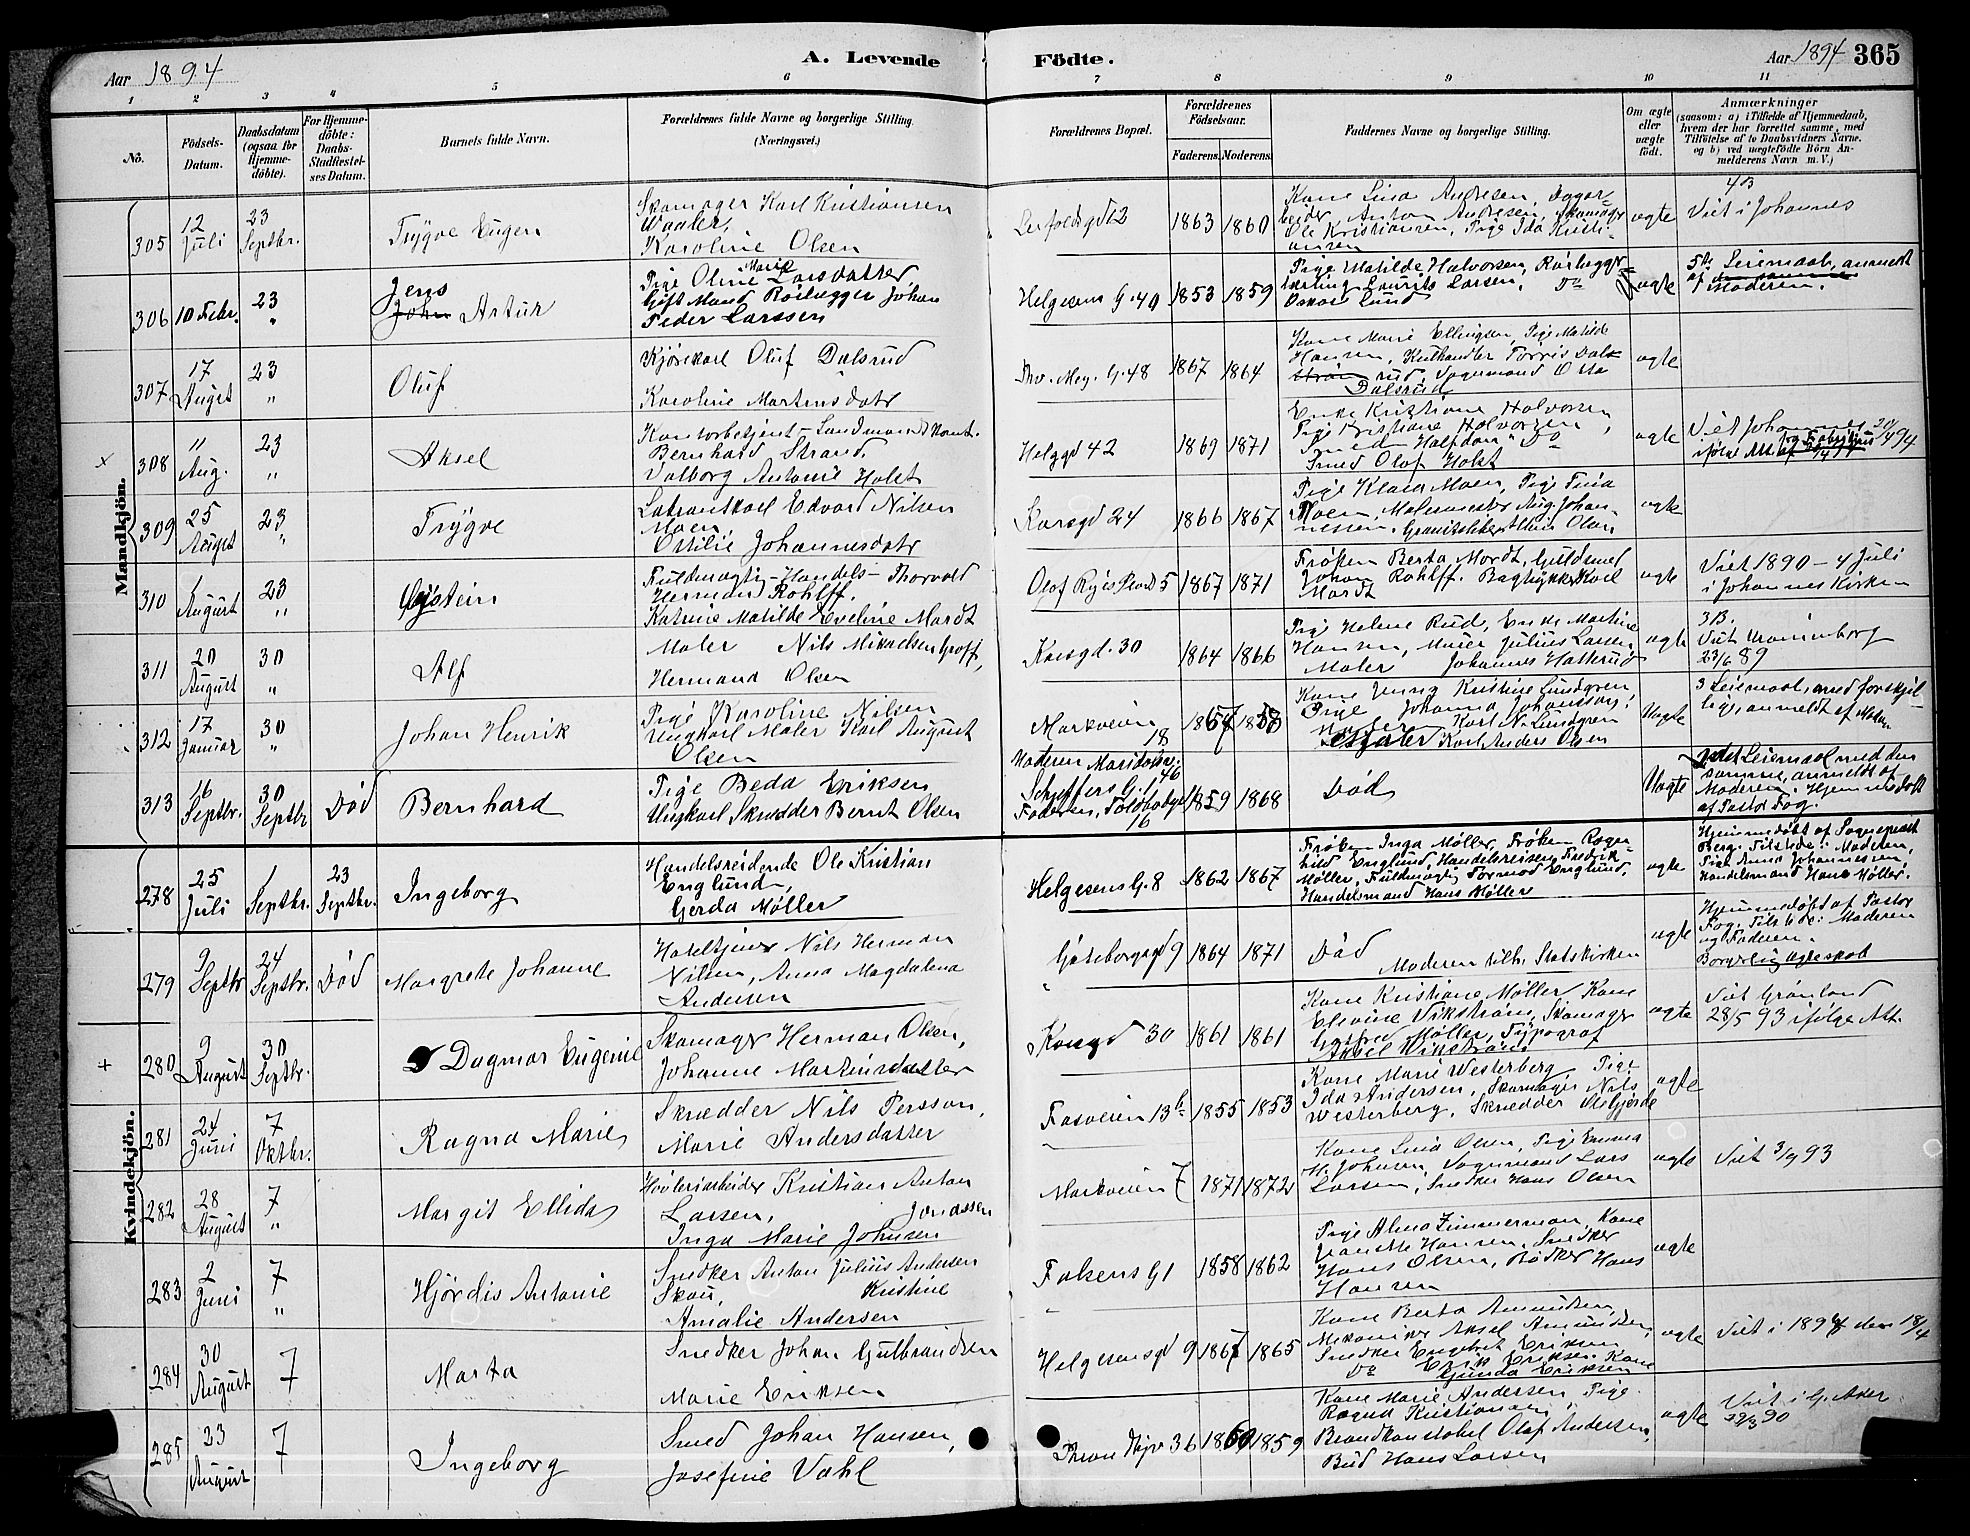 Aar 1894
A. Levende
Födte.
Aar 1894 365
1 2 3 4 5 6 7 8 9 10 11
No.
Födsels-
Datum.
Daabsdatum
(ogsaa for
Hjemme-
döbte).
For Hjemme-
döbte:
Daabs-
Stadfæstel-
ses Datum.
Barnets fulde Navn.
Forældrenes fulde Navne og borgerlige Stilling.
(Næringsvei.)
Forældrenes Bopæl.
Forældrenes
Födselsaar.
Faderens. Moderens.
Faddernes Navne og borgerlige Stilling.
Om ægte
eller
uægte
födt.
Anmærkninger
(saasom: a) i Tilfælde af Hjemmedaab,
hvem der har forrettet samme, med
Tilföielse af to Daabsvidners Navne.
og b) ved uægtefödte Börn An-
melderens Navn m. V.)
Mandkjön.
305
12
Juli
23
Septbr.
Trygve Eugen
Skomager Karl Kristiansen
Waaler,
Karoline Olsen
1863 1860
Kone Lina Andresen, Dagar-
beider Anton Andresen, Skomager
Ole Kristiansen, Pige Ida Kristi-
ansen
ægte
Viet i Johannes
306
10 Febr.
23
"
Jens
John Artur
Pige Oline Marie Larsdatter,
Gift Mand Rørlægger Johan
Peder Larssen
Helgesens G. 40
1853 1859
Pige Matilde Halvorsen, Rørlægger-
lærling Laurits Larsen, Do
Oskar Lund
Uægte
5te Leiermaal, anmeldt
af
Moderen.
307
17
August
23
"
Oluf
Kjørekarl Oluf Dalsrud
Karoline Martinsdatr
Thv. Mey. G. 48
1867 1864
Kone Marie Ellingsen, Pige Matilde
Hansen, Torris Dals-
strøm rud, Vognmand Otto
Dalsrud
ægte
308
11
Aug.
23
"
Aksel
Kontorbetjent - Landmand
Bernhard Strand,
Valborg Antonie Holst
Helggd 42
1869 1871
Enke Kristiane Halvorsen,
Pige Kristiane Halvorsen,
Smed Halfdan Do
Smed Olof Holst
ægte
Viet Johannes 20/4 94
ifølge Att.
309
25
August
23
"
Trygve
Edvard Nilsen
Moen,
Ottilie Johannesdatr
Korsgd 24
1866 1867
Pige Klara Moen, Pige Tina
Moen, Malermester Aug. Johan-
nessen, Granitslider Olsen
ægte
310
1
August
23
"
Øystein
Fuldmægtig - Handels - Thorvald
Herman Rohlff.
Katrine Matilde Eveline Mardt
Olof Ryes Plads 5
1867 1871
Frøken Berta Mardt, Guldsmed
Johan Rohlff. Bogtrykker Karl
Mardt
ægte
Viet 1890 - 4 Juli
i Johannes Kirken
311
20
August
30
"
Alf
Maler Nils Mikaelsen Groff,
Hermana Olsen
Korsgd. 30
1864 1866
Pige Helene Rud, Enke Martine
Hansen, Murer Julius Larsen
Maler Johannes Hatterud
ægte
3B.
Viet Uranienborg
23/6 89
312
17
Januar
30
"
Johan Henrik
Pige Karoline Nilsen
Ungkarl Maler Karl August
Olsen
Markveien
18
1867 1858
Kone Jenny Kristine Lundgren,
Pige Johanna Johansson,
Karl N. Lundgren
Maler Karl Anders Olsen
Uægte
3 Leiermaal, med forskjel-
lige, anmeldt af Mdn.
313
16
Septbr.
30
Septbr
Død
Bernhard
Pige Beda Eriksen
Ungkarl Skrædder Bernt Olsen
Moderen Maridalsv. 46
Schjeffers G. 1
Faderen, Toldbodgd
16
1859 1868
Død
Uægte
2det Leiermaal med den
samme, anmeldt af
Moderen. Hjemmedøbt
af Pastor Fog.
Kvindekjön.
278
25
Juli
1
Septbr.
23
Septbr.
Ingeborg
Handelsreidende Ole Kristian
Englund,
Gerda Møller
Helgesens G. 8
1862 1867
Frøken Inga Møller, Frøken Ragn-
hild Englund, Handelsreisen. Fredrik
Møller, Fuldmægtig Tormod Englund,
Handelsmand Hans Møller
ægte
Hjemmedøbt af Sognepræst
Berg. Tilstede: Moderen,
Pige Anna Johannessen,
Handelsmand Hans Møller.
279
9
Septbr
24
Septbr.
Død
Margrete Johanne
Hoteltjener Nils Herman
Nilsen, Anna Magdalena
Andersen
Gøteborggd 9
1864 1871
Død
Moderen tilh. Statskirken
ægte
Hjemmedøbt af Pastor
Fog. Tilstede: Moderen
og Faderen.
Borgerlig Ægteskab
280
9
August
30
Septbr.
Dagmar Eugenie
Skomagr Herman Olsen,
Johanne Martinsdatter
Korsgd 30
1861 1861
Kone Kristiane Møller, Kone
Elevine Vikstrøm, Skomagr
Møller, Typograf
Aksel Wikstrøm
ægte
Viet Grønland
28/5 93 ifølge Att.
281
24
Juni
7
Oktbr.
Ragna Marie
Skrædder Nils Persson,
Marie Andersdatter
Fosveien 13b
1855 1853
Kone Marie Westerberg, Pige
Ida Andersen, Skomager Nils
Westerberg, Skrædder
ægte
282
28
August
7
"
Margit Ellida
Høvleriarbeider Kristian Anton
Larsen, Jonassen
Inga Marie Johnsen
Markveien 7
1871 1872
Kone Lina Olsen, Pige Emma
M. Johnsen, Vognmand Lars
Larsen, Snedker Hans Olsen
ægte
Viet 3/9 93
283
2
Juni
7
"
Hjørdis Antonie
Snedker Anton Julius Andersen
Skou, Kristine
Amalie Andersen
Falsens G 1
1858 1862
Pige Alma Zimmerman, Kone
Jeanette Hansen, Snedker
Hans Olsen, Bødker Hans
Hansen
ægte
284
30
August
7
Marta
Snedker Johan Gulbrandsen
Marie Eriksen
Helgesensgd 9
1867 1865
Kone Berta Amundsen,
Mekaniker Aksel Amundsen,
Snedker Engebret Eriksen
Do Erik Eriksen, Kone
Gunda Eriksen
ægte
Viet i 1894 den 18/4
285
23
August
7
Ingeborg
Smed Johan Hansen,
Josefine Vahl
36
1860 1859
Kone Marie Andersen, Pige
Ragna Kristiansen,
Brandkonstabel Olaf Andersen,
Bud Hans Larsen
ægte
Viet i G. Aker